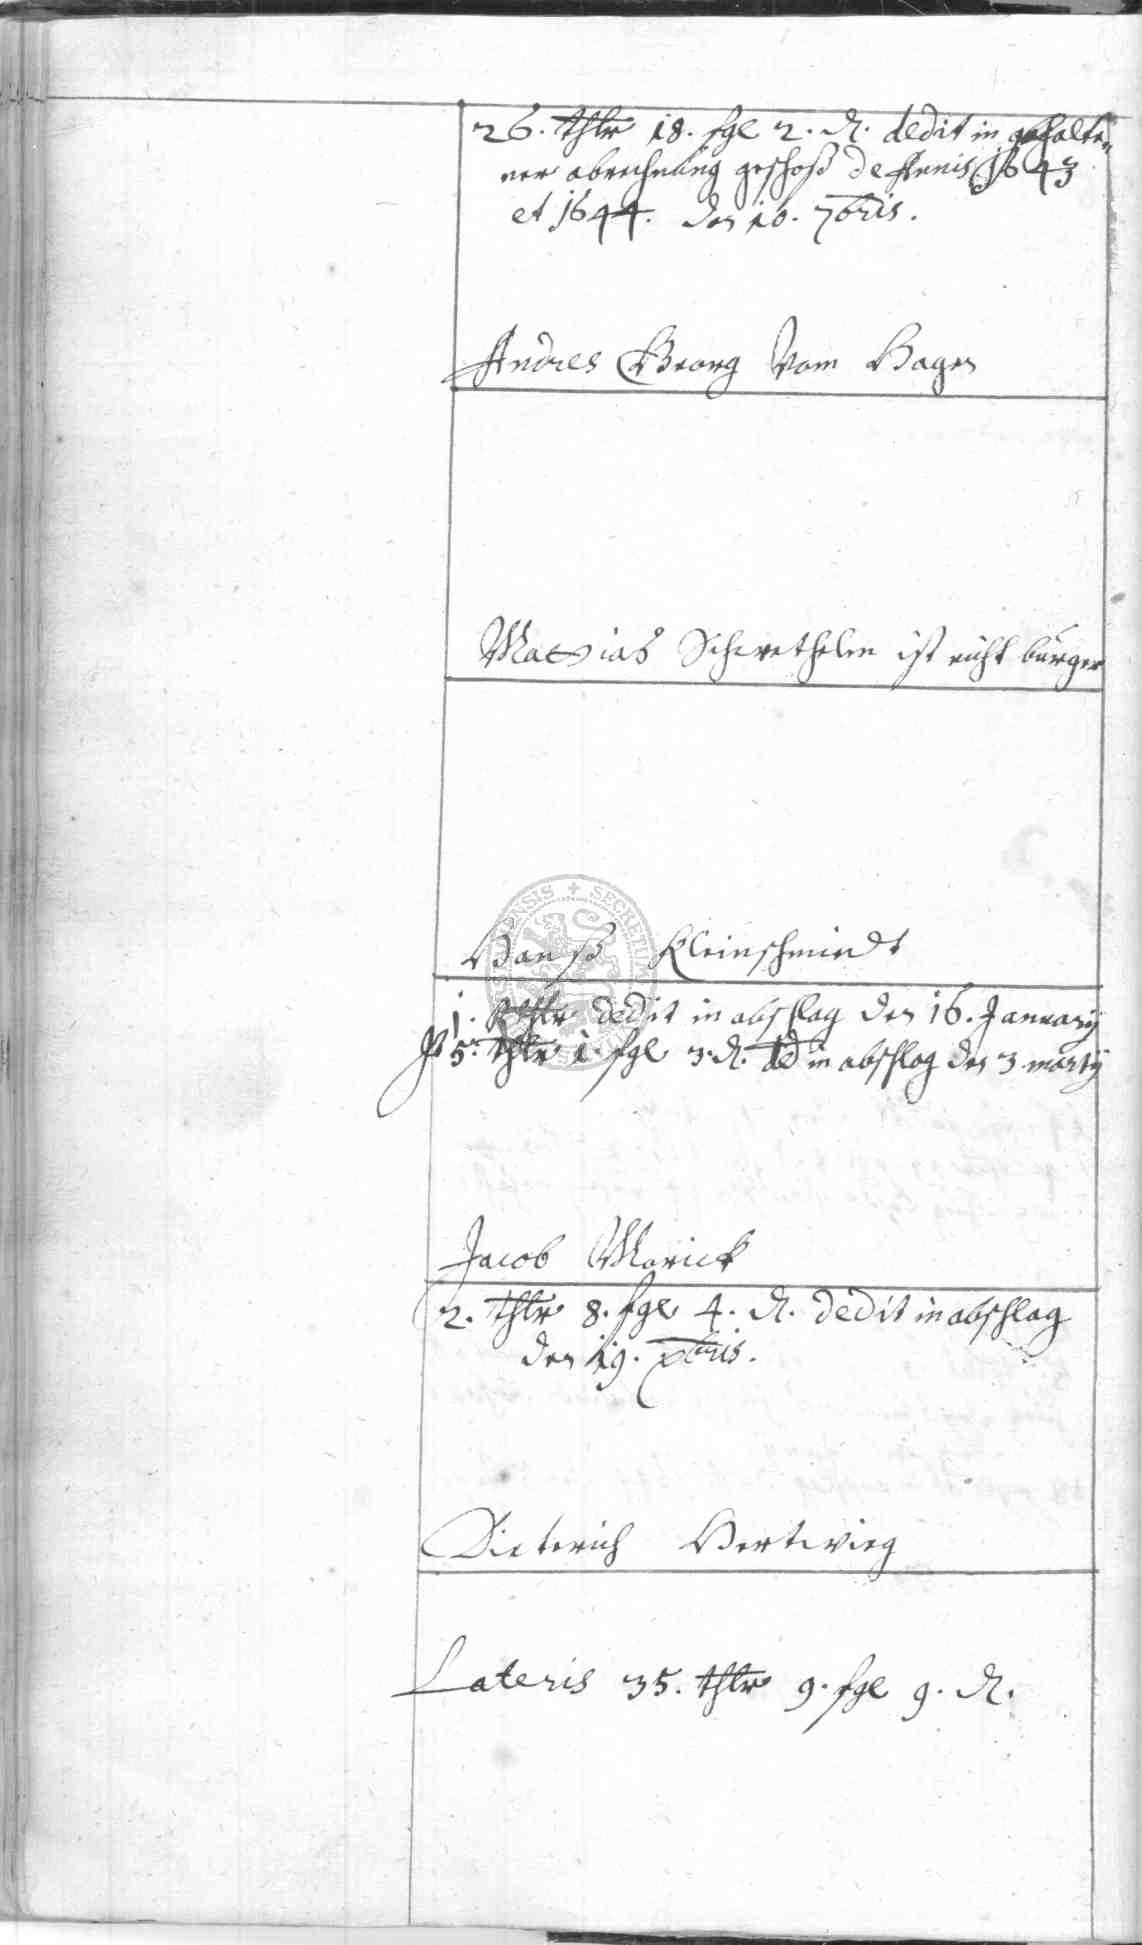 26. thlr 18. sgl 2. ₰. dedit in gehalte-
ner abrechnung geschoß de Annis 1643
et 1644. den 10. 7bris.
Andres Georg Vom Hagen
Mattias Schwethelm ist nicht bürger
Hanß Kleinschmiedt
1. Rthlr dedit in abschlag den 16. January
5. thlr 1. sgl 3. ₰. id in abschlag den 3 marty
Jacob Marick
2. thlr 8. sgl 4. ₰. dedit in abschlag
den 19. xbris.
Dieterich Hertwieg
Lateris 35. thlr 9. sgl 9. ₰.
SECRETUM